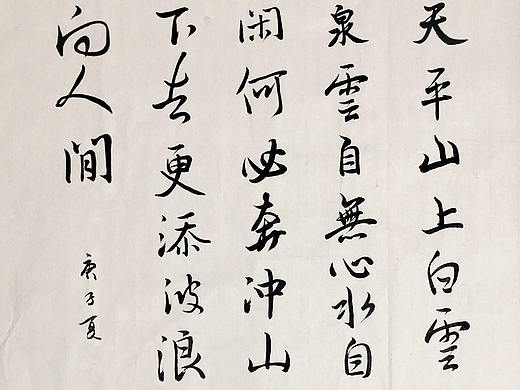 天平山上白雲
泉雲自無心水自
閑何必奔沖山
下去更添波浪
向人間
庚子夏